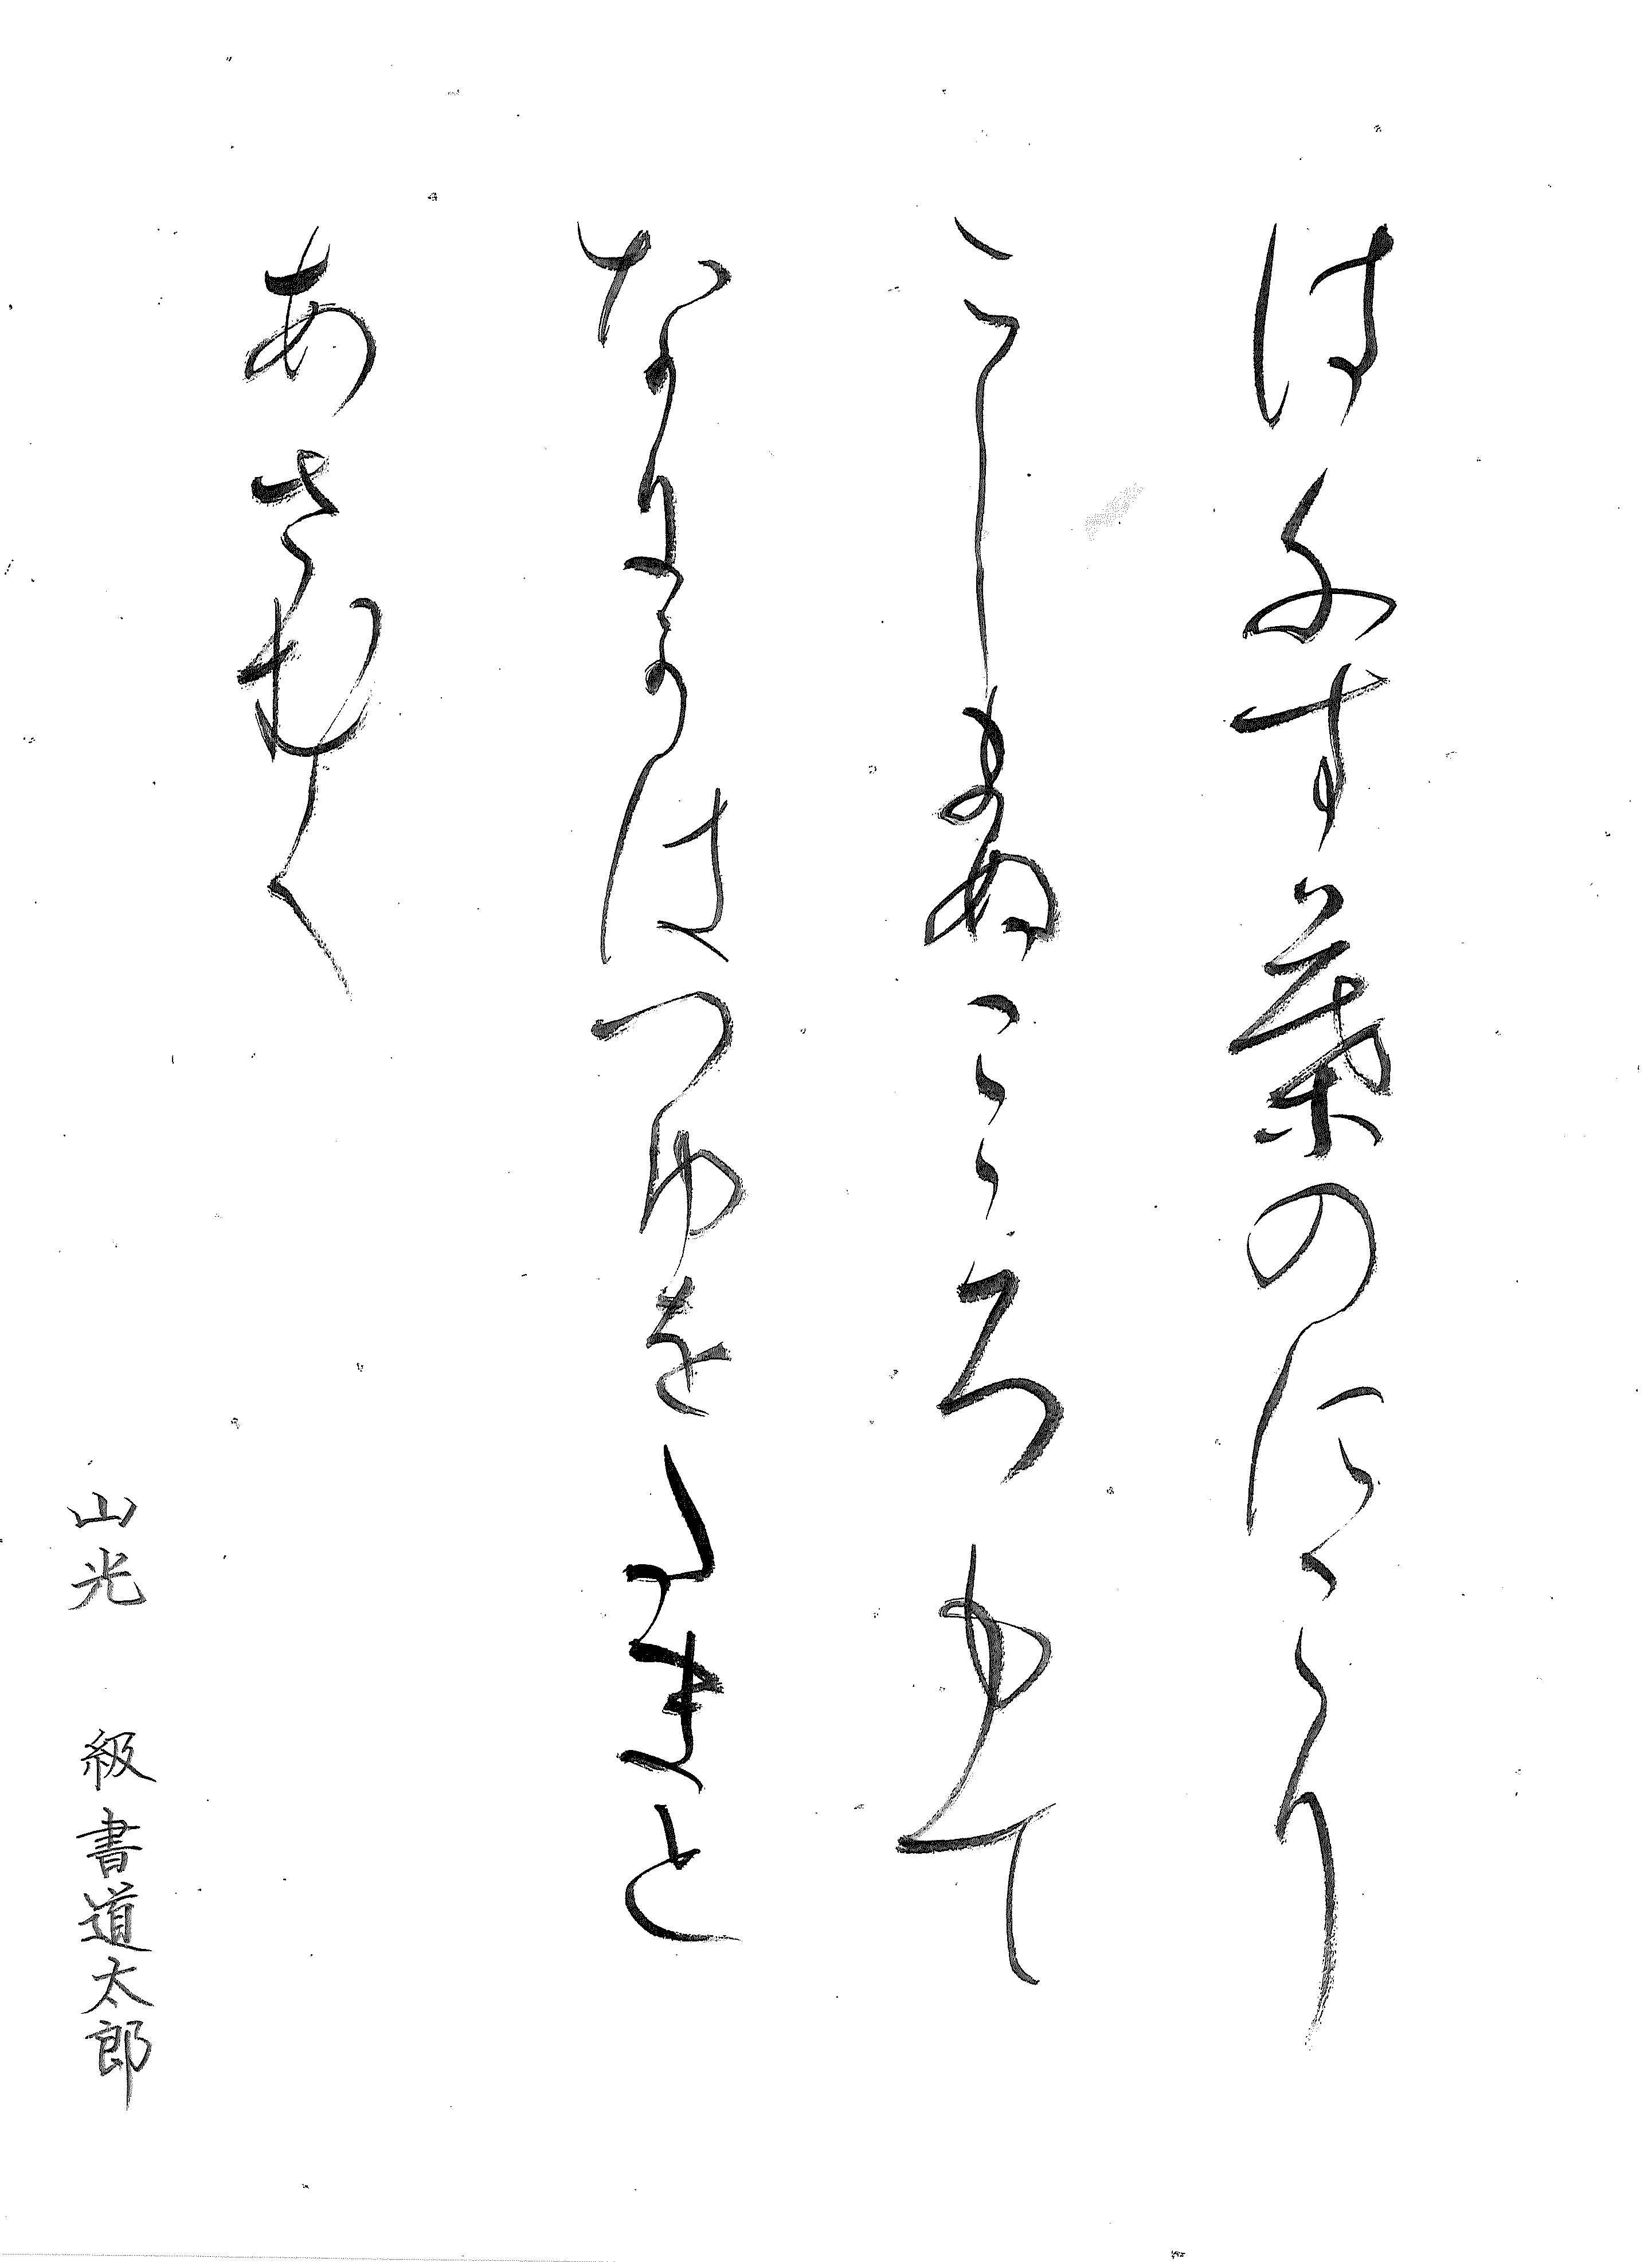 はちす葉のにこり
にしまぬこゝろもて
なにかはつゆをたまと
あさむく
山光　級書道太郎